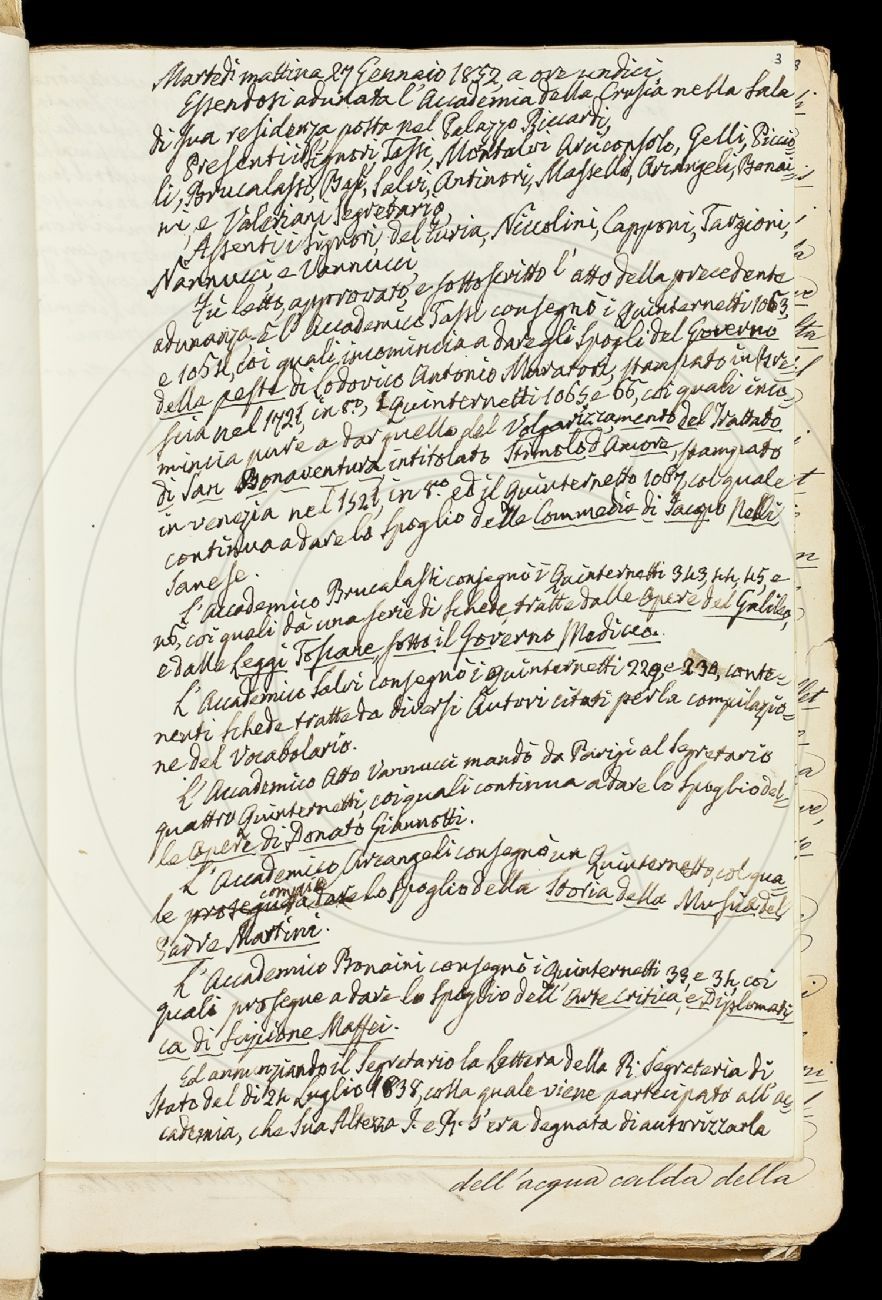 3
Martedì mattina 27 Gennaio 1852, a ore undici,
Essendosi adunata l'Accademia della Crusca nella Sala
di sua residenza posta nel Palazzo Riccardi,
Presenti i Signori Tassi, Montalvi Arciconsolo, Gelli, Piccio-
li, Brucalassi, Gasi, Salvi, Antinori, Masselli, Arcangeli, Bonai-
ni, e Valeriani Segretario,
Assenti i Signori, del Furia, Niccolini, Capponi, Targioni,
Nannucci e Vannucci,
Fù letto, approvato, e sottoscritto l'atto della precedente
adunanza. E l'Accademico Tassi consegnò i Quinternetti 1063,
e 1064, coi quali incomincia a dare gli Spogli del Governo
della peste di Lodovico Antonio Muratori, stampato in Bre-
scia nel 1721, in 8.º, I Quinternetti 1065 e 66, coi quali inco-
mincia pure a dar quello del Volgarizzamento del Trattato
di San Bonaventura intitolato Stimolo d'Amore, stampato
in Venezia nel 1521, in 8.º ed il Quinternetto 1067, col quale
continua a dare lo Spoglio delle Commedie di Jacopo Nelli
Sanese.
L'Accademico Brucalassi consegnò i Quinternetti 343, 44, 45, e
46, coi quali dà una serie di Schede, tratte dalle Opere del Galileo,
e dalle Leggi Toscane, sotto il Governo Mediceo.
L'Accademico Salvi consegnò i Quinternetti 229, e 230, conte-
nenti Schede tratte da diversi Autori citati per la compilazio-
ne del Vocabolario.
L'Accademico Atto Vannucci mandò da Parigi al Segretario
quattro Quinternetti, coi quali continua a dare lo Spoglio del-
le Opere di Donato Giannotti.
L'Accademico Arcangeli consegnò un Quinternetto, col qua-
compie
le prosegue a dare lo Spoglio della Storia della Musica del
Padre Martini.
L'Accademico Bonaini consegnò i Quinternetti 33, e 34, coi
quali prosegue a dare lo Spoglio dell'Arte Critica, e Diplomati-
ca di Scipione Maffei.
Ed annunziando il Segretario la Lettera della R. Segreteria di
Stato del dì 24 Luglio 1838, colla quale viene partecipato all'Ac-
cademia, che Sua Altezza I. e R. s'era degnata di autorizzarla
dell'acqua calda della